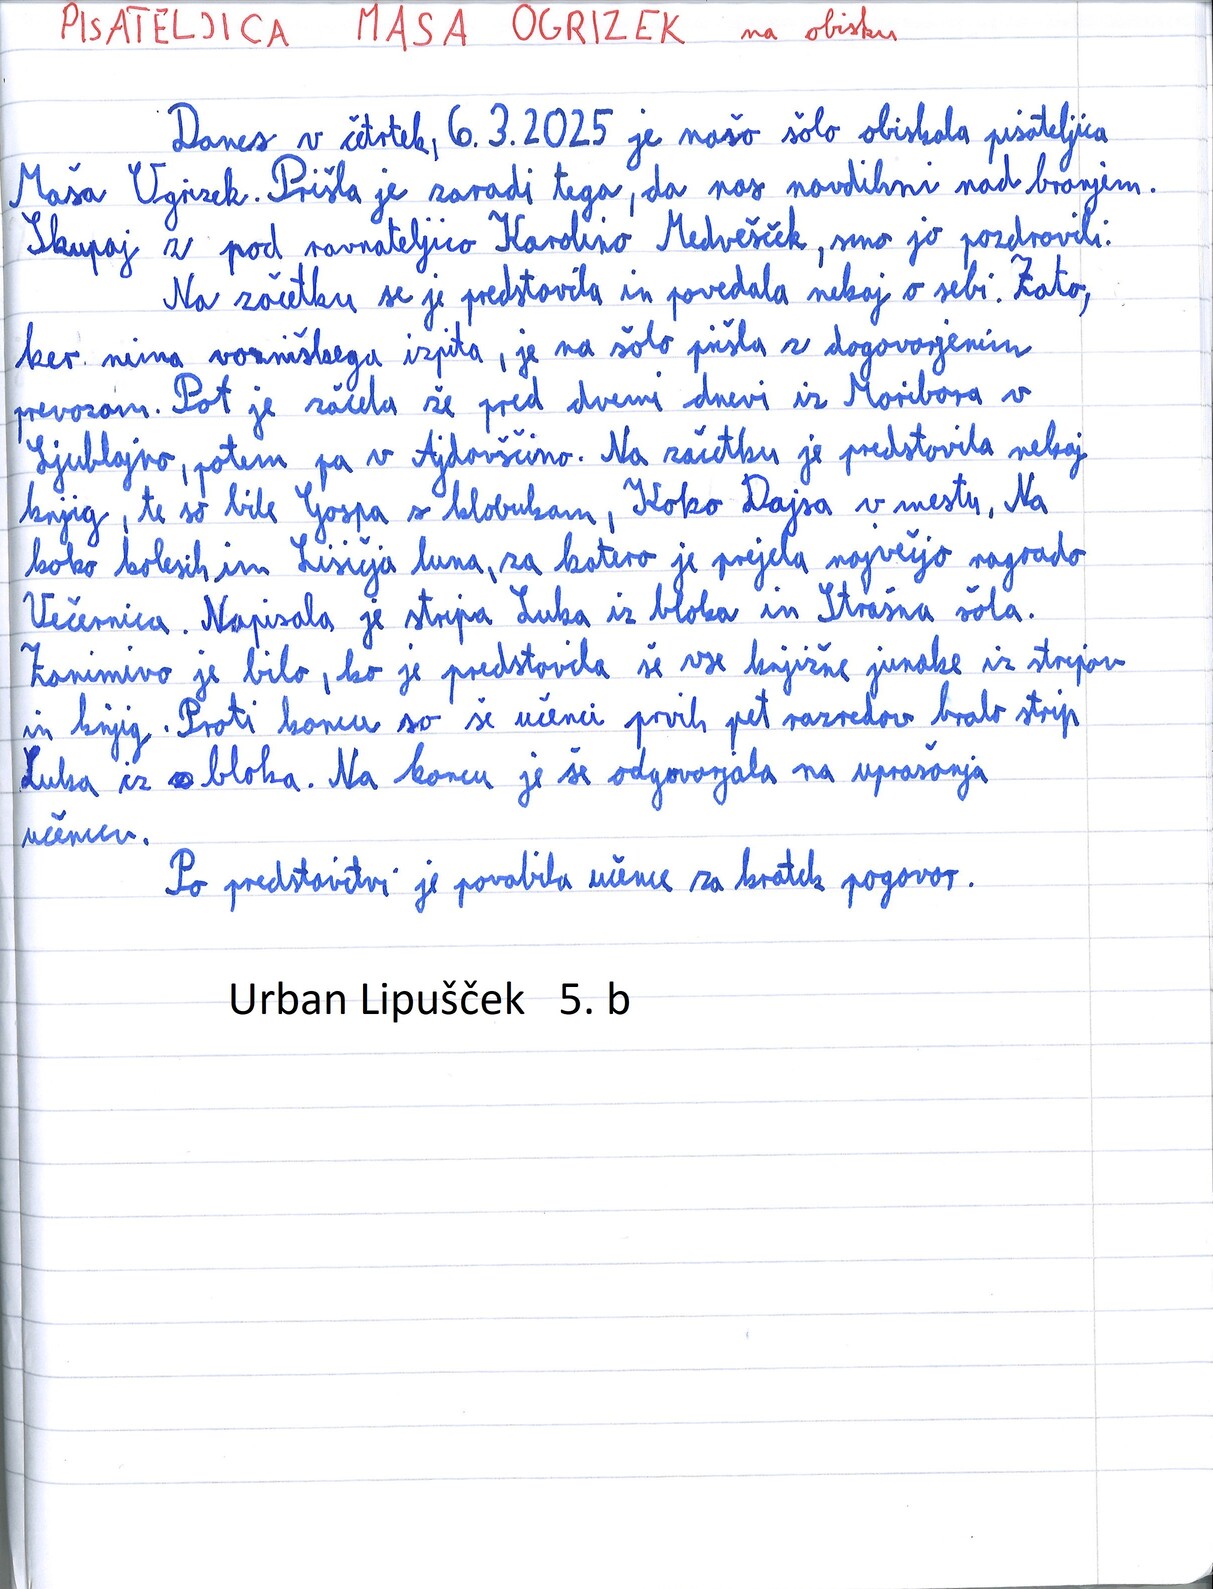 PISATELJICA MAŠA OGRIZEK na obisku
Danes v četrtek, 6.3.2025 je našo šolo obiskala pisateljica
Maša Ogrizek. Prišla je zaradi tega, da nas navdihni nad branjem.
Skupaj z pod ravnateljico Karolino Medvešček, smo jo pozdravili.
Na začetku se je predstavila in povedala nekaj o sebi. Zato,
ker nima vozniškega izpita, je na šolo prišla z dogovorjenim
prevozom. Pot je začela že pred dvemi dnevi iz Maribora v
Ljubljano, potem pa v Ajdovščino. Na začetku je predstavila nekaj
knjig, te so bile Gospa s klobukam, Koko Dajsa v mestu, Na
koko kolesih in Lisičja luna, za katero je prejela največjo nagrado
Večernica. Napisala je stripa Luka iz bloka in Strašna šola.
Zanimivo je bilo, ko je predstavila še vse knjižne junake iz stripov
in knjig. Proti koncu so še učenci prvih pet razredov bralo strip
Luka iz bloka. Na koncu je še odgovarjala na uprašanja
učencev.
Po predstavitvi je povabila učence za kratek pogovor.
Urban Lipušček 5. b